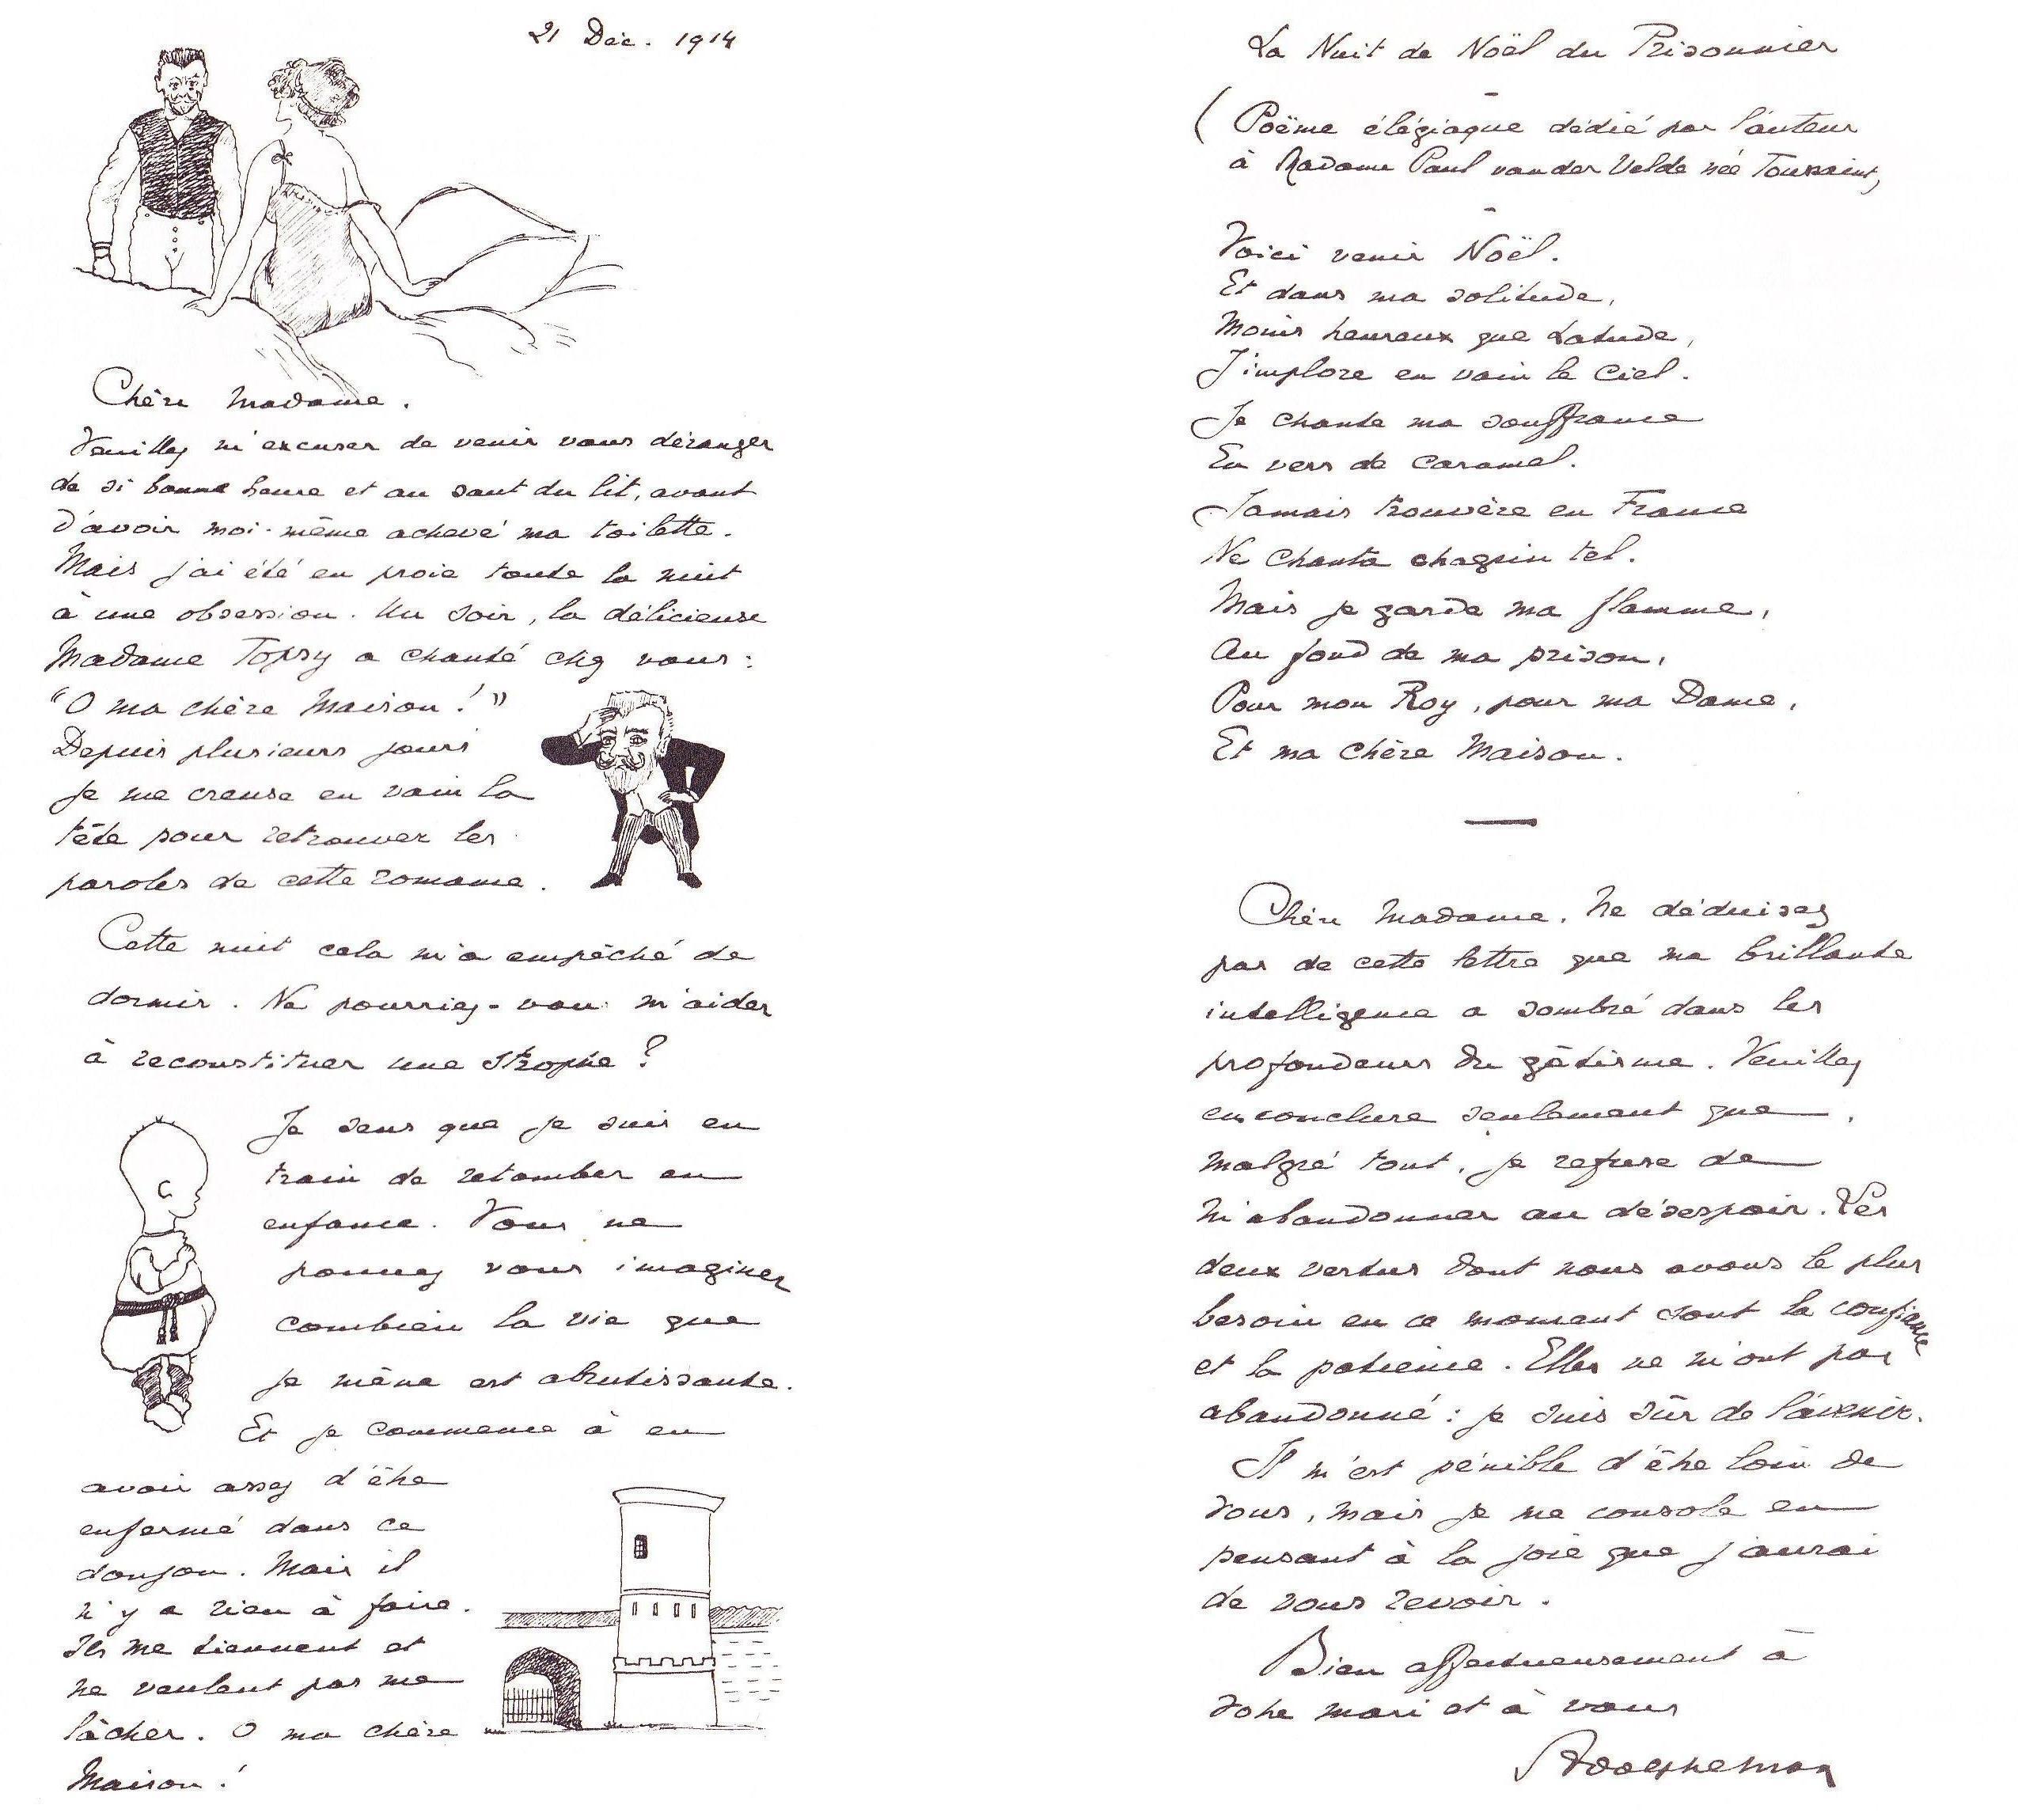 21 Déc. 1914
Chère Madame.
Veuillez m'excuser de venir vous déranger
de si bonne heure et au saut du lit, avant
d'avoir moi-même achevé ma toilette.
Mais j'ai été en proie toute la nuit
à une obsession. Un soir, la délicieuse
Madame Topsy a chanté chez vous:
"O ma chère Maison!"
Depuis plusieurs jours
je me creuse en vain la
tête pour retrouver les
paroles de cette romance.
Cette nuit cela m'a empêché de
dormir. Ne pourriez-vous m'aider
à reconstituer une strophe?
Je sens que je suis en
train de retomber en
enfance. Vous ne
pouvez vous imaginer
combien la vie que
je mène est abrutissante.
Et je commence à en
avoir assez d'être
enfermé dans ce
donjon. Mais il
n'y a rien à faire.
Ils me tiennent et
ne veulent pas me
lâcher. O ma chère
Maison!
La Nuit de Noël du Prisonnier
(Poëme élégiaque dédié par l'auteur
à Madame Paul van der Velde née Toussaint)
Voici venir Noël.
Et dans ma solitude,
Moins heureux que Latude,
J'implore en vain le Ciel.
Je chante ma souffrance
En vers de caramel.
Jamais trouvère en France
Ne chanta chagrin tel.
Mais je garde ma flamme,
Au fond de ma prison,
Pour mon Roy, pour ma Dame,
Et ma chère Maison.
Chère Madame, ne déduisez
pas de cette lettre que ma brillante
intelligence a sombré dans les
profondeurs du gâtisme. Veuillez
en conclure seulement que,
malgré tout, je refuse de
m'abandonner au désespoir. Les
deux vertus dont nous avons le plus
besoin en ce moment sont la confiance
et la patience. Elles ne m'ont pas
abandonné: je suis sûr de l'avenir.
Il m'est pénible d'être loin de
vous, mais je me console en
pensant à la joie que j'aurai
de vous revoir.
Bien affectueusement à
votre mari et à vous